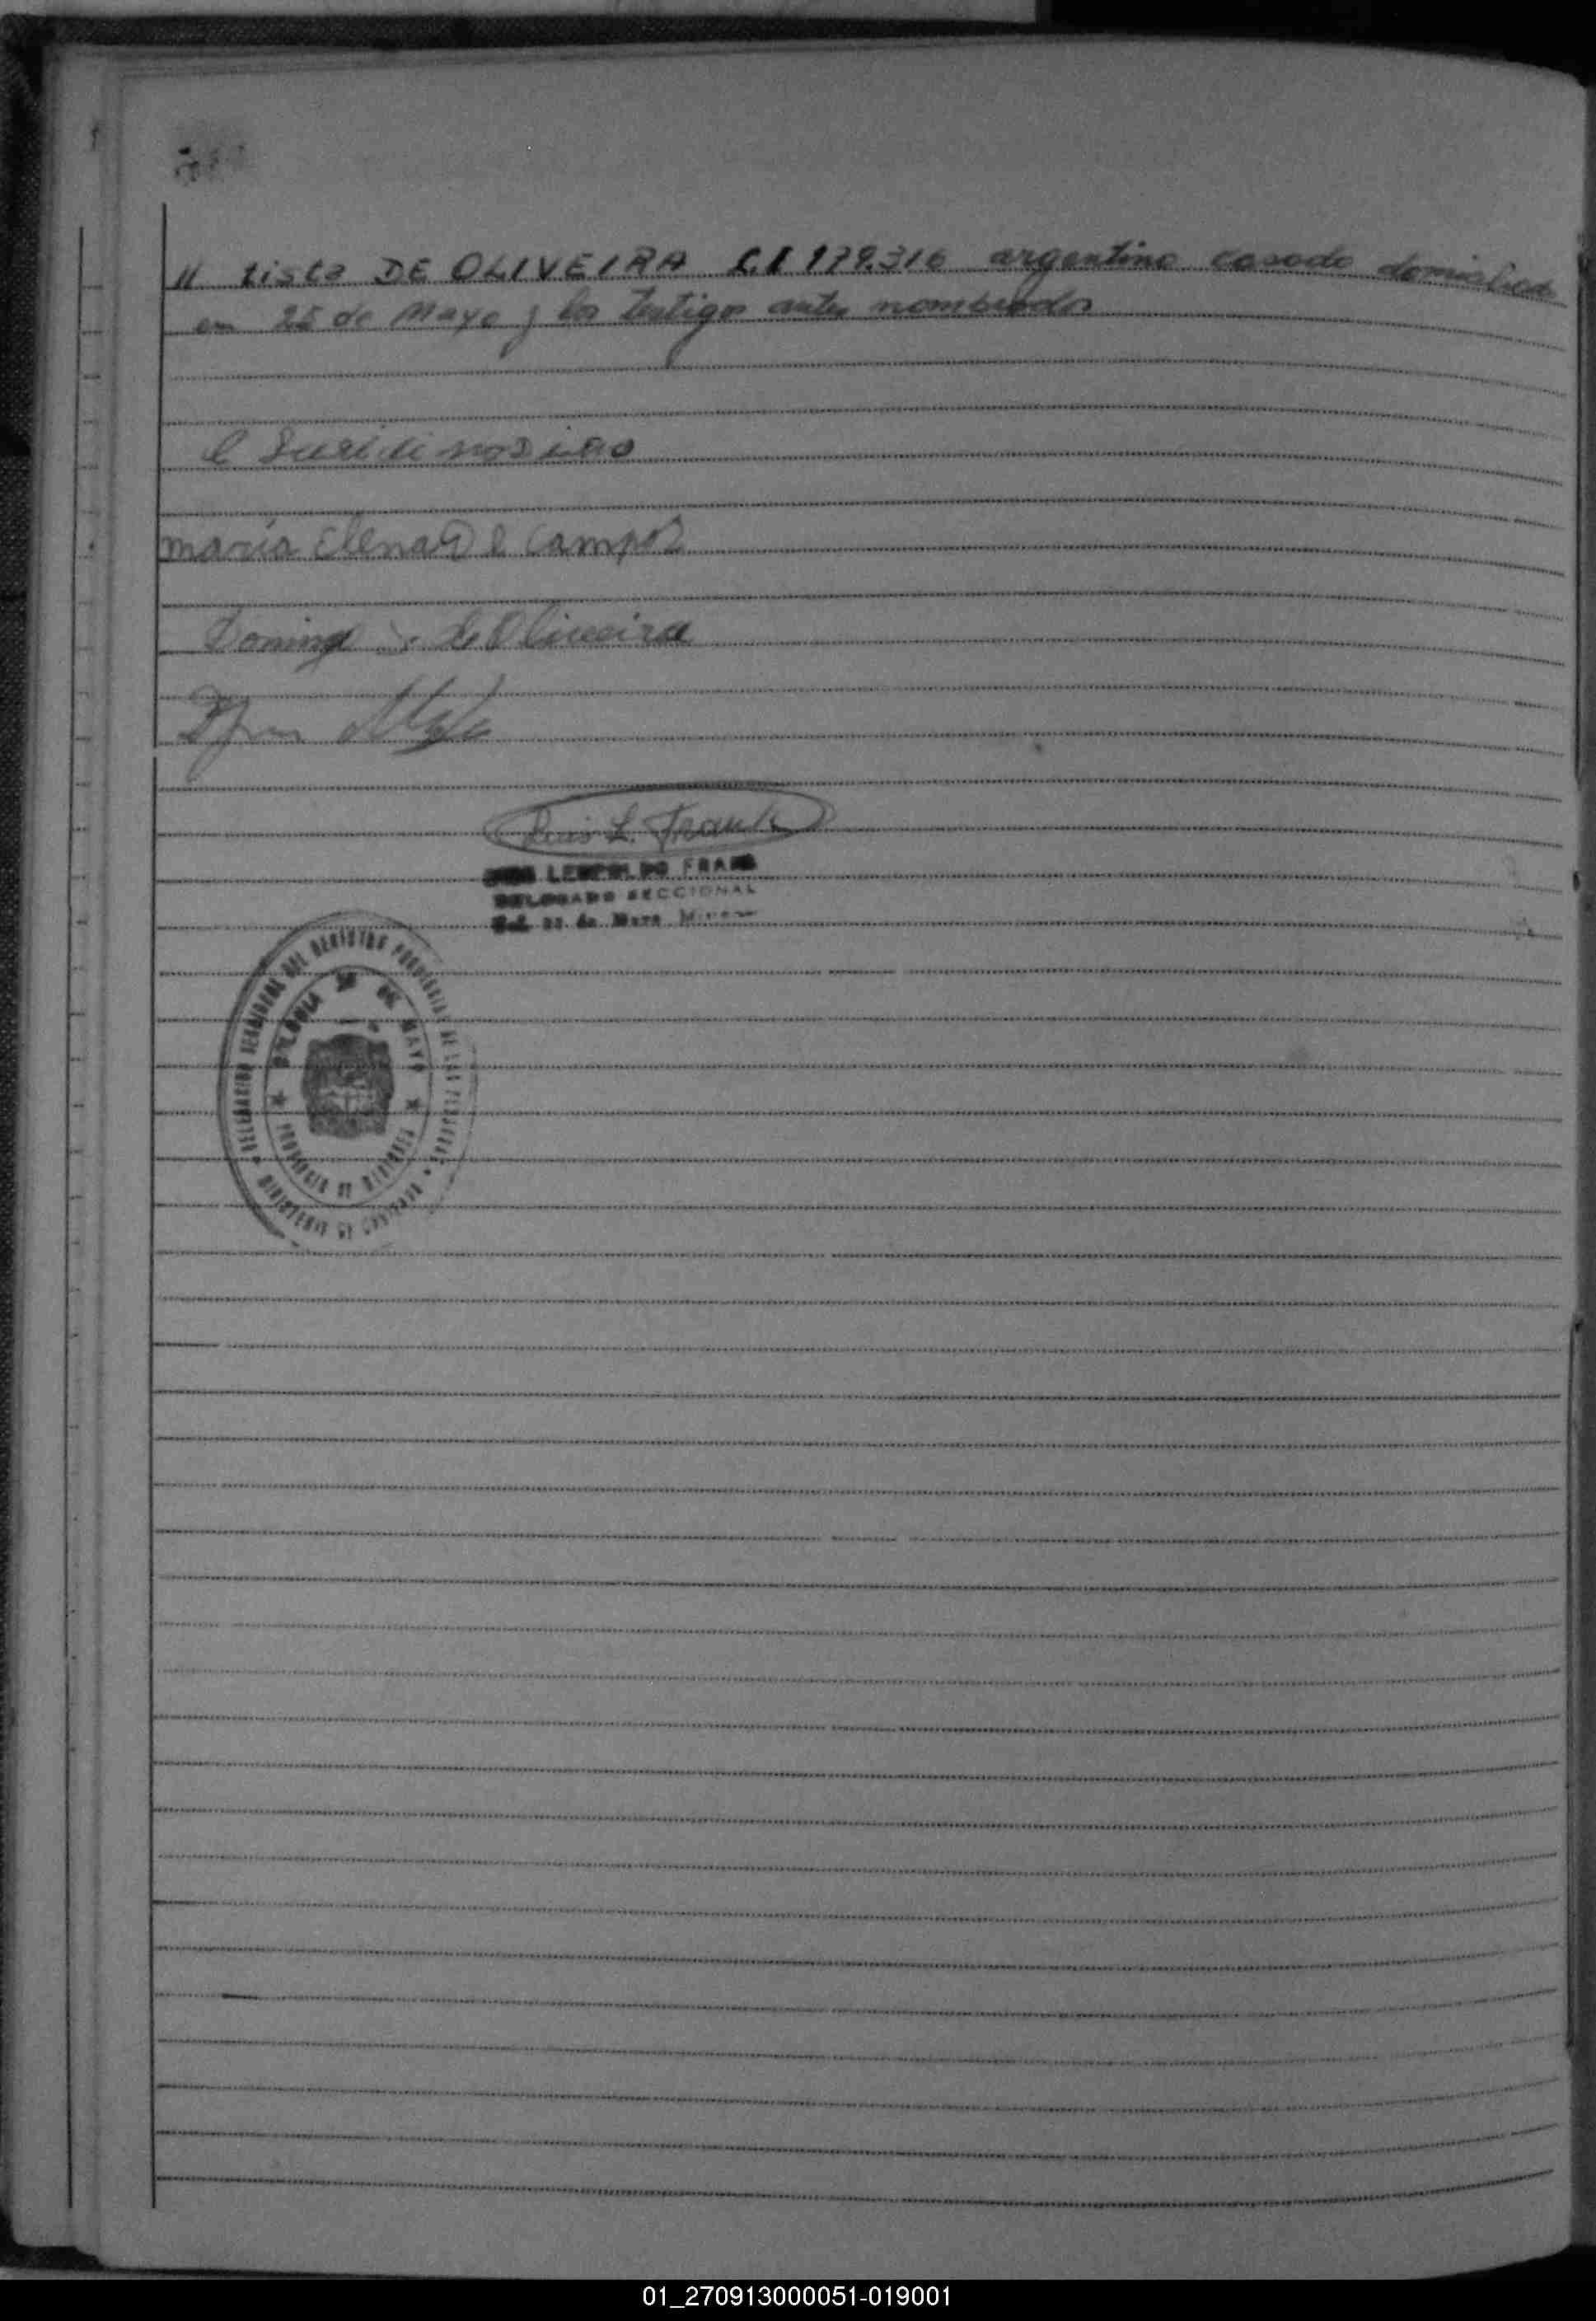 // Lista DE OLIVEIRA C.I 179.316 argentino casado domiciliado
en 25 de Mayo y los testigos antes nombrados
maria Elena D e Campos
Domingo De Oliveira
Luis L. Frank
LEOPOLDO FRANK
DELEGADO SECCIONAL
25 de Mayo
DELEGACION SECCIONAL DEL REGISTRO PROVINCIAL DE LAS PERSONAS
COLONIA 25 DE MAYO
PROVINCIA DE MISIONES
MINISTERIO DE GOBIERNO
01_270913000051-019001